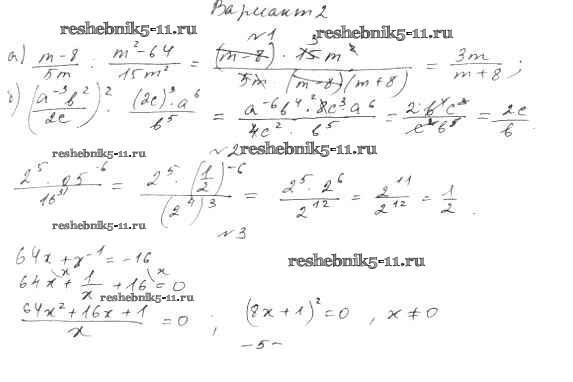 Вариант 2
reshebnik5-11.ru
№1
reshebnik5-11.ru
а) (m-8)/(5m) : (m²-64)/(15m²) = ((m-8) · 15m²)/(5m (m-8)(m+8)) = 3m/(m+8) ;
((a⁻³b²)/(2c))² · ((2c)³ · a⁶)/b⁵ = (a⁻⁶b⁴ · 8c³ · a⁶)/(4c² · b⁵) = (2b⁴c³)/(c²b⁵) = 2c/b .
reshebnik5-11.ru
№2
reshebnik5-11.ru
(2⁵ · 0,5⁻⁶)/16³ = (2⁵ · (1/2)⁻⁶)/(2⁴)³ = (2⁵ · 2⁶)/2¹² = 2¹¹/2¹² = 1/2 .
reshebnik5-11.ru
№3
64x + x⁻¹ = -16
64x + 1/x + 16 = 0
reshebnik5-11.ru
reshebnik5-11.ru
(64x² + 16x + 1)/x = 0 ; (8x + 1)² = 0 , x ≠ 0
-5-